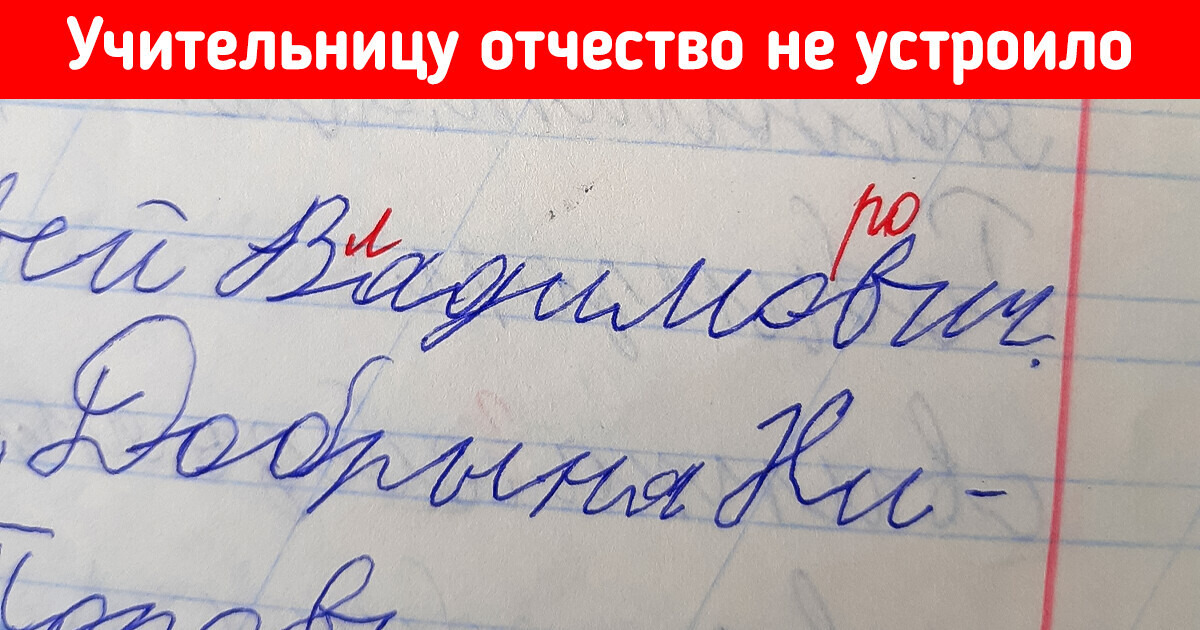 Учительницу отчество не устроило
л ро
ей Вадимович.
Добрыня Ни-